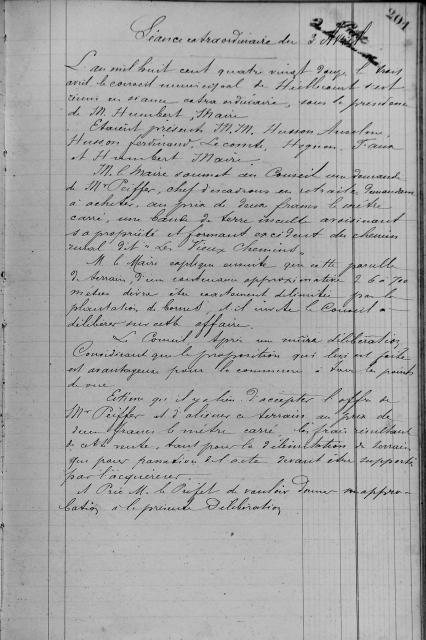 201
Séance extraordinaire du 3 Avril
L'an mil huit cent quatre vingt douze le trois
avril le conseil municipal de s'est
réuni en séance extraordinaire, sous la présidence
de M. Humbert, Maire
Etaient présents M.M. Husson Anselme,
Husson ferdinand, Lecomte, Hognon, Faux
et Humbert Maire.
M. le Maire soumet au Conseil une demande
de Mr Peiffer, chef d'escadrons en retraite demandant
à acheter, au prix de deux francs le mètre
carré, une bande de terre inculte avoisinant
sa propriété et formant excédent du chemin
rural dit "Les Vieux Chemins"
M. le Maire explique ensuite que cette parcelle
de terrain, d'une contenance approximative de 6 à 700
mètres devra être exactement délimitée par la
plantation de bornes, et il invite le Conseil à
délibérer sur cette affaire.
Le Conseil, Après en mûre délibération,
Considérant que la proposition qui lui est faite
est avantageuse pour la commune à tous les points
de vue
Estime qu'il y a lieu d'accepter l'offre de
Mr Peiffer et d'aliéner ce terrain au prix de
deux francs le mètre carré, les frais résultant
de cette vente, tant pour la délimitation du terrain
que pour passation de l'acte devant être supportés
par l'acquéreur.
Et Prie M. le Préfet de vouloir donner son appro-
bation à la présente Délibération